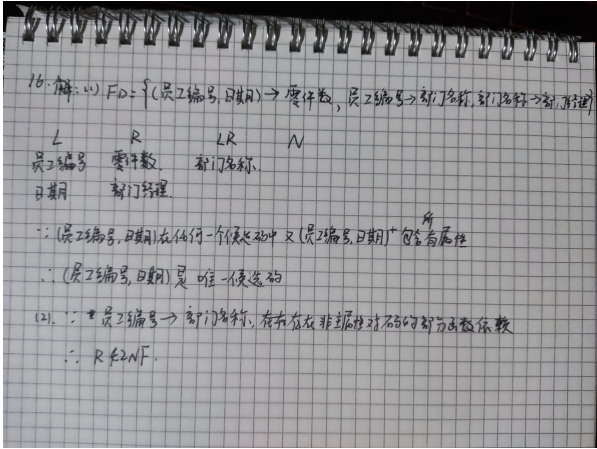 16.解:(1) FD={(员工编号,日期)→零件数,员工编号→部门名称,部门名称→部门经理}
L R LR N
员工编号 零件数. 部门名称.
日期 部门经理.
∵(员工编号,日期)在任何一个候选码中 又(员工编号,日期)⁺包含所有属性
∴(员工编号,日期)是唯一候选码
(2). ∵ 员工编号→部门名称,存在非主属性对码的部分函数依赖
∴ R∉2NF.